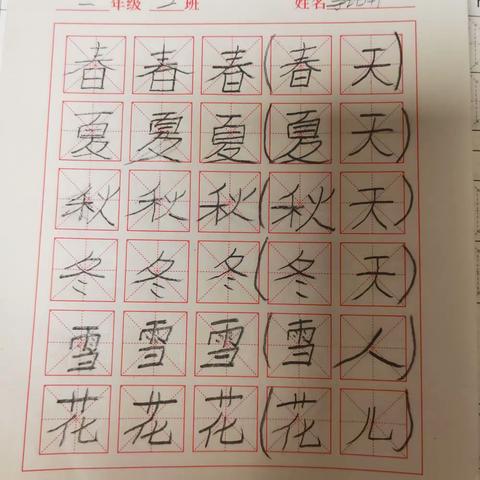 年级 班 姓名
春春春(春天)
夏夏夏(夏天)
秋秋秋(秋天)
冬冬冬(冬天)
雪雪雪(雪人)
花花花(花儿)